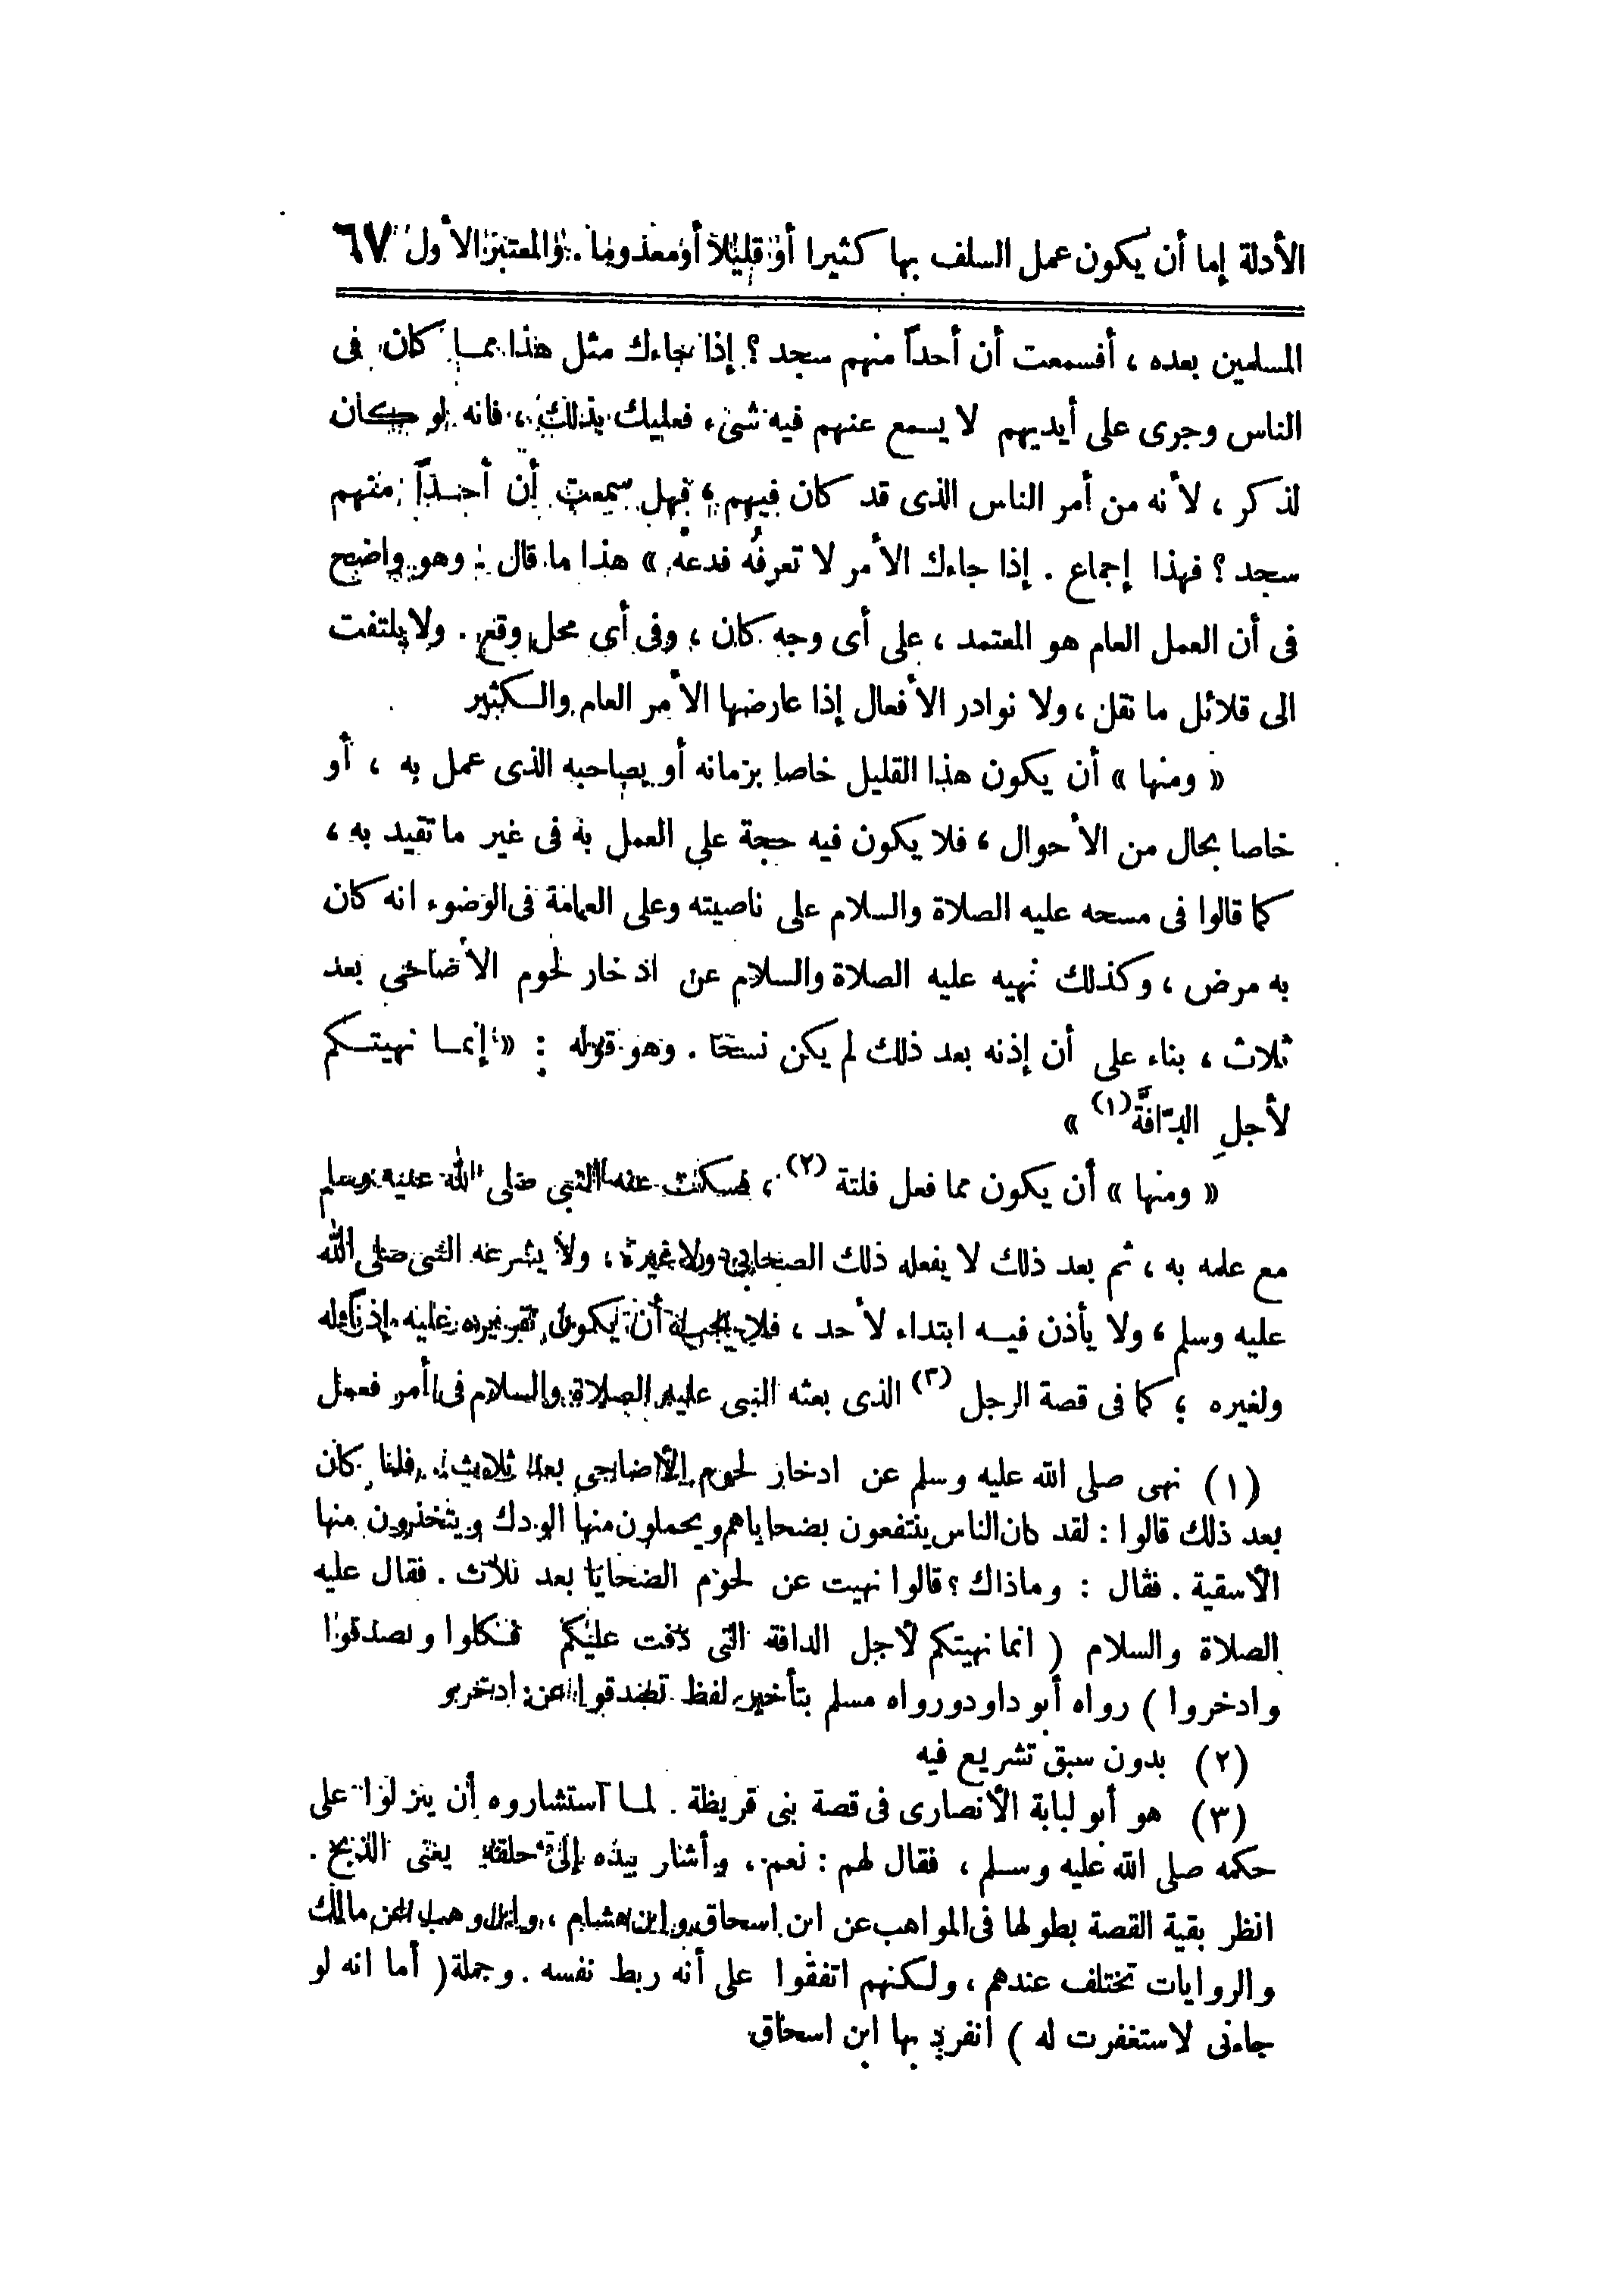 الأدلة إما أن يكون عمل السلف بها كثيرا أو قليلا أو معدوما . والمعتبر الأول ٦٧
المسلمين بعده ، أفسمعت أن أحداً منهم سجد ؟ إذا جاءك مثل هذا مما كان فى
الناس وجرى على أيديهم لا يسمع عنهم فيه شىء فعليك بذلك ، فانه لو كان
لذكر ، لأنه من أمر الناس الذى قد كان فيهم ، فهل سمعت أن أحداً منهم
سجد ؟ فهذا إجماع . إذا جاءك الأمر لا تعرفُه فدعه » هذا ما قال . وهو واضح
فى أن العمل العام هو المعتمد ، على أى وجه كان ، وفى أى محل وقع . ولا يلتفت
الى قلائل ما نقل ، ولا نوادر الأفعال إذا عارضها الأمر العام والكثير
« ومنها » أن يكون هذا القليل خاصا بزمانه أو بصاحبه الذى عمل به ، أو
خاصا بحال من الأحوال ، فلا يكون فيه حجة على العمل به فى غير ما تقيد به ،
كما قالوا فى مسحه عليه الصلاة والسلام على ناصيته وعلى العمامة فى الوضوء انه كان
به مرض ، وكذلك نهيه عليه الصلاة والسلام عن ادخار لحوم الأضاحى بعد
ثلاث ، بناء على أن إذنه بعد ذلك لم يكن نسخا . وهو قوله : « إنما نهيتكم
لأجل الدّافَّة (١) »
« ومنها » أن يكون مما فعل فلتة (٢) ، فسكت عنه النبى صلى الله عليه وسلم
مع علمه به ، ثم بعد ذلك لا يفعله ذلك الصحابى ولا غيره ، ولا يشرعه النبى صلى الله
عليه وسلم ، ولا يأذن فيه ابتداء لأحد ، فلا يجب أن يكون تقريره عليه إذناً له
ولغيره ، كما فى قصة الرجل (٣) الذى بعثه النبى عليه الصلاة والسلام فى أمر فعمل
(١) نهى صلى الله عليه وسلم عن ادخار لحوم الأضاحى بعد ثلاث . فلما كان
بعد ذلك قالوا : لقد كان الناس ينتفعون بضحاياهم ويحملون منها الودك ويتخذون منها
الأسقية . فقال : وماذاك ؟ قالوا نهيت عن لحوم الضحايا بعد ثلاث . فقال عليه
الصلاة والسلام ( انما نهيتكم لأجل الدافة التى دفت عليكم فكلوا وتصدقوا
وادخروا ) رواه أبو داود ورواه مسلم بتأخير لفظ تصدقوا عن ادخروا
(٢) بدون سبق تشريع فيه
(٣) هو أبو لبابة الأنصارى فى قصة بنى قريظة . لما استشاروه أن ينزلوا على
حكمه صلى الله عليه وسلم ، فقال لهم : نعم ، وأشار بيده إلى حلقه يعنى الذبح .
انظر بقية القصة بطولها فى المواهب عن ابن اسحاق وابن هشام ، وابن وهب عن مالك
والروايات تختلف عندهم ، ولكنهم اتفقوا على أنه ربط نفسه . وجملة ( أما انه لو
جاءنى لاستغفرت له ) انفرد بها ابن اسحاق